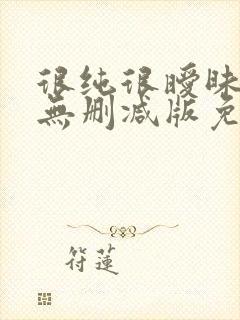 很纯很暧昧
無删减版免
符蓮